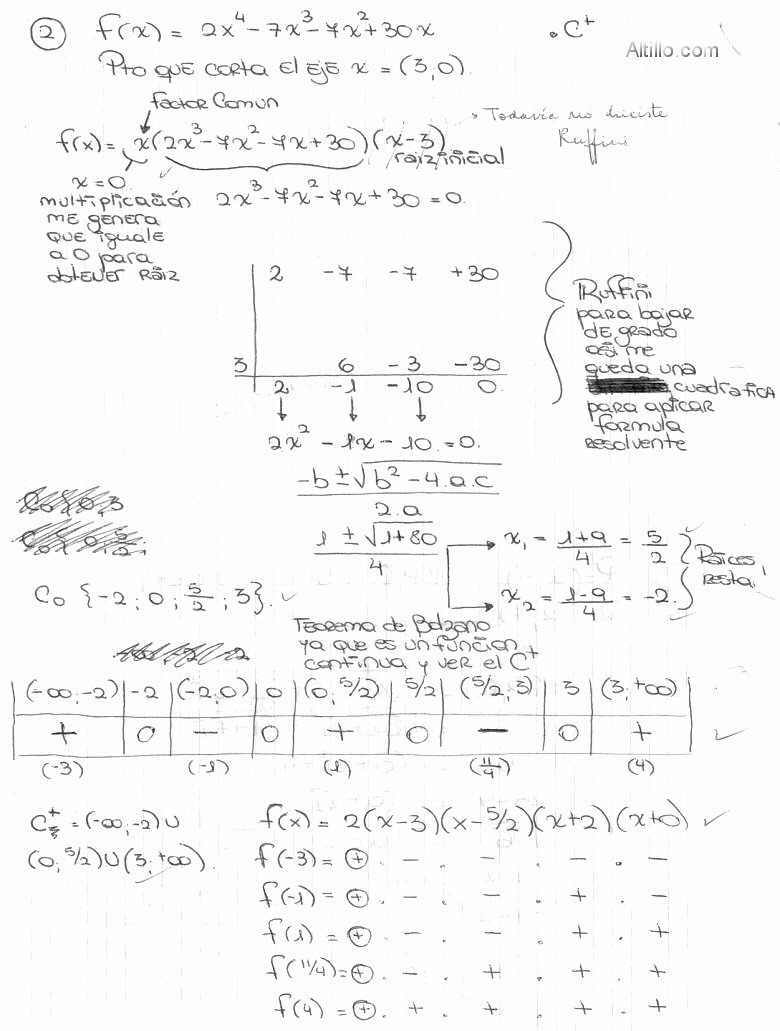 ② f(x) = 2x⁴ - 7x³ - 7x² + 30x . C⁺
Altillo.com
Pto que corta el eje x = (3,0).
factor comun
f(x) = x(2x³ - 7x² - 7x + 30)(x-3)
raiz inicial
Todavía no hiciste
Ruffini
x = 0.
multiplicación
me genera
que iguale
a 0 para
obtener raiz
2x³ - 7x² - 7x + 30 = 0.
2 -7 -7 +30
3 6 -3 -30
2 -1 -10 0
Ruffini
para bajar
de grado
asi me
queda una
cuadratica
para aplicar
formula
resolvente
2x² - 1x - 10 = 0.
-b ± √b² - 4.a.c
2.a
1 ± √1+80
4
x₁ = 1+9/4 = 5/2
x₂ = 1-9/4 = -2.
Raices,
resta.
C₀ {-2; 0; 5/2; 3}.
Teorema de Bolzano
ya que es un función
continua y ver el C⁺
(-∞,-2) -2 (-2,0) 0 (0,5/2) 5/2 (5/2,3) 3 (3,+∞)
+ 0 - 0 + 0 - 0 +
(-3) (-1) (1) (11/4) (4)
C⁺ = (-∞,-2) ∪
(0,5/2) ∪ (3,+∞).
f(x) = 2(x-3)(x-5/2)(x+2)(x+0)
f(-3) = ⊕ . - . - . - . -
f(-1) = ⊕ . - . - . + . -
f(1) = ⊕ . - . - . + . +
f(11/4) = ⊕ . - . + . + . +
f(4) = ⊕ . + . + . + . +